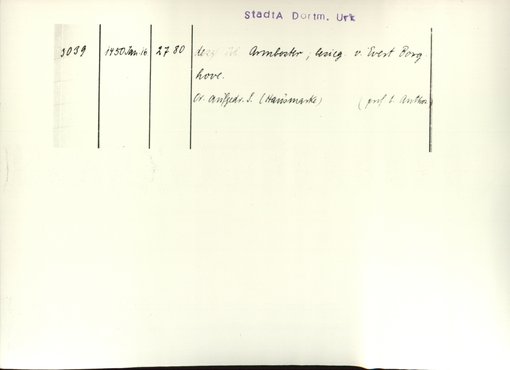 StadtA Dortm. Urk
3039 1450 Jan 16 2780 Armboster; besieg. v. Evert Borg
hove.
Or. aufgedr. S. (Hausmarke) (prof. b. Anthon)